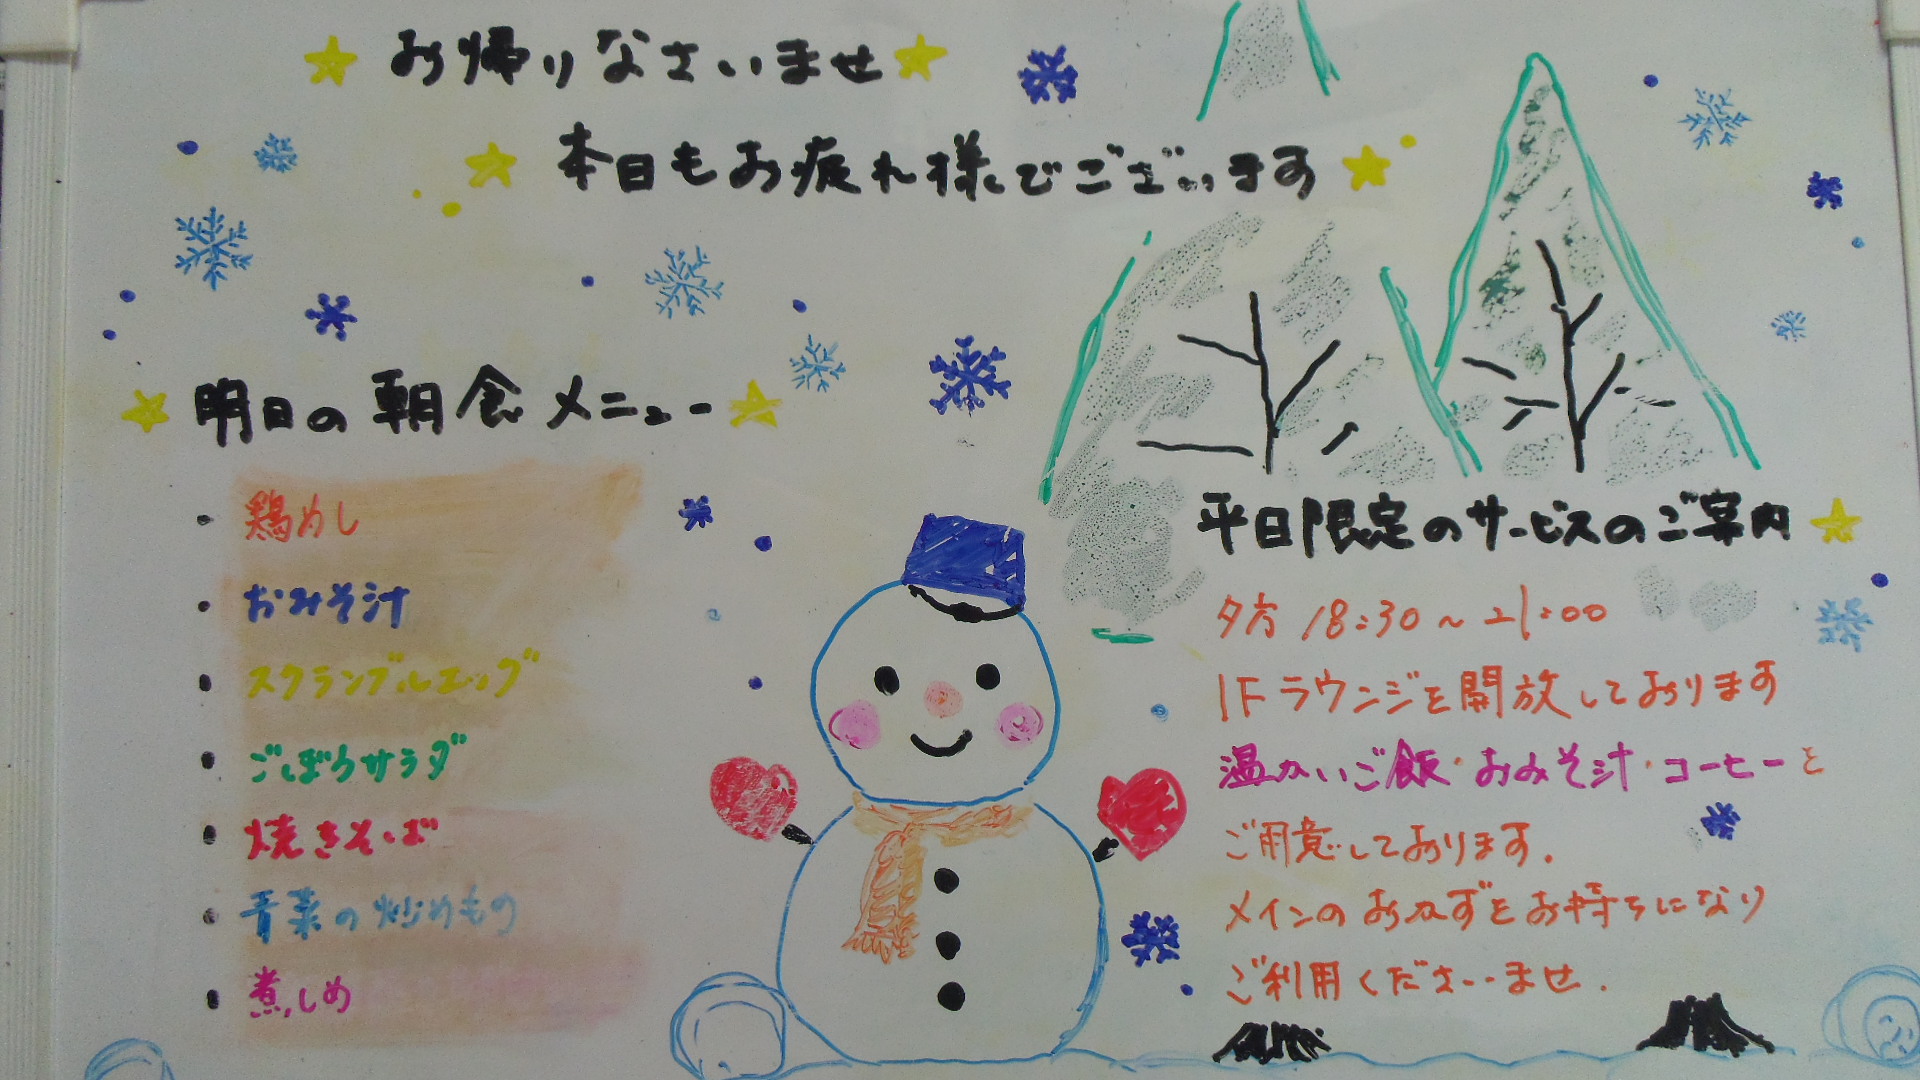 お帰りなさいませ
本日もお疲れ様でございます
明日の朝食メニュー
・鶏めし
・おみそ汁
・スクランブルエッグ
・ごぼうサラダ
・焼きそば
・青菜の炒めもの
・煮しめ
平日限定のサービスのご案内
夕方 18:30～21:00
1Fラウンジを開放しております
温かいご飯・おみそ汁・コーヒーと
ご用意しております.
メインのおかずをお持ちになり
ご利用くださいませ.